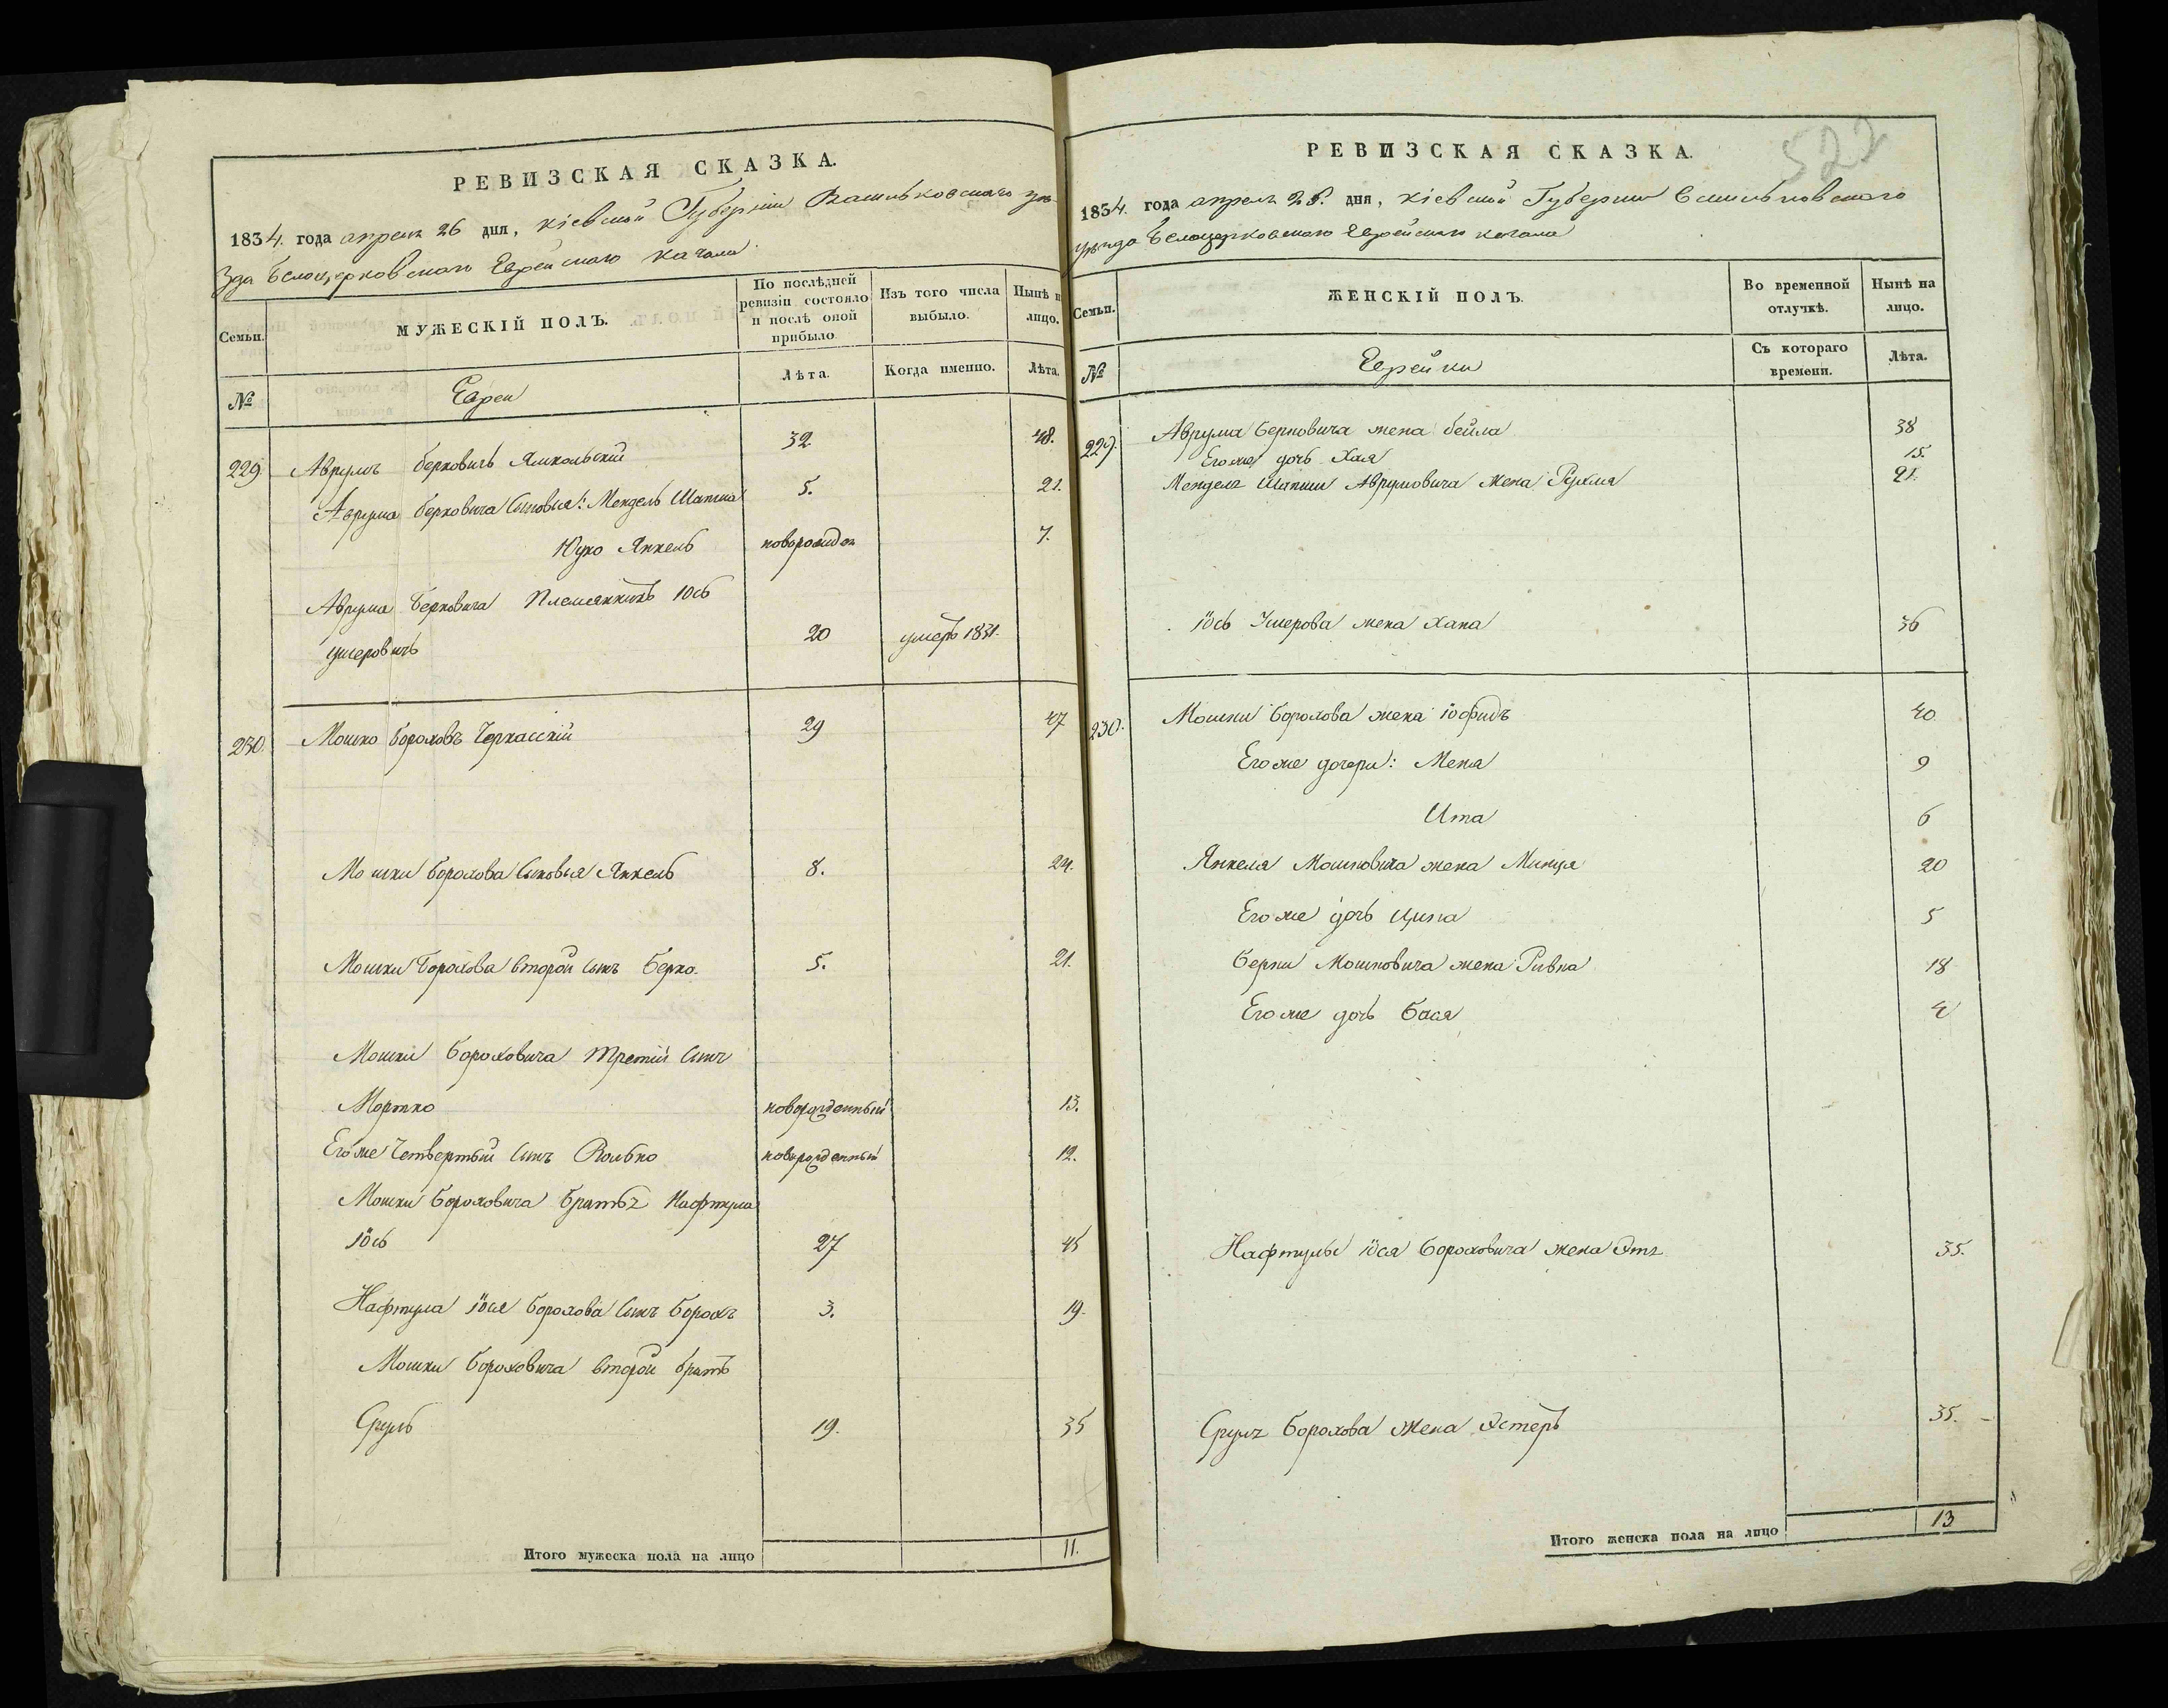 РЕВИЗСКАЯ СКАЗКА.
1834. года апреля 26 дня, Кіевской Губерніи Васильковскаго уѣ-
зда Белоцерковскаго Еврейскаго кагала
Семьи.
МУЖЕСКІЙ ПОЛЪ.
По послѣдней ревизіи состояло и послѣ оной прибыло.
Изъ того числа выбыло.
Нынѣ на лицо.
№
Евреи
Лѣта.
Когда именно.
Лѣта.
229. Аврумъ Берковичъ Ямпольскій 32 48.
Аврума Берковича Сыновья: Мендель Шапша 5. 21.
Юдко Янкель новорожден 7.
Аврума Берковича Племянникъ Іось
Умеровичъ 20 умеръ 1831.
230. Мошко Бороховъ Черкасскій 29 47
Мошки Борохова Сыновья Янкель 8. 24.
Мошки Борохова второй сынъ Берко. 5. 21.
Мошки Бороховича третій сынъ
Мортко новорожденный 13.
Его же Четвертый сынъ Волько новорожденный 12.
Мошки Бороховича братъ Нафтула
Іось 27 45
Нафтула Іося Борохова сынъ Борохъ 3. 19.
Мошки Бороховича второй братъ
Сруль 19. 35
Итого мужеска пола на лицо 11.
522
РЕВИЗСКАЯ СКАЗКА.
1834. года апреля 26. дня, Кіевской Губерніи Васильковскаго
уѣзда Белоцерковскаго Еврейскаго кагала
Семьи.
ЖЕНСКІЙ ПОЛЪ.
Во временной отлучкѣ.
Нынѣ на лицо.
№
Еврейки
Съ котораго времени.
Лѣта.
229. Аврума Берковича жена Бейла 38
Его же дочь Хая 15.
Мендель Шапши Аврумовича жена Рухля 21.
Іось Умерова жена Хана 36
230. Мошки Борохова жена Іофидъ 40
Его же дочери: Меня 9
Ита 6
Янкеля Мошковича жена Минця 20
Его же дочь Ципа 5
Берки Мошковича жена Ривка 18
Его же дочь Бася 4
Нафтулы Іося Бороховича жена Этъ 35.
Срулъ Борохова жена Эстеръ 35.
Итого женска пола на лицо 13